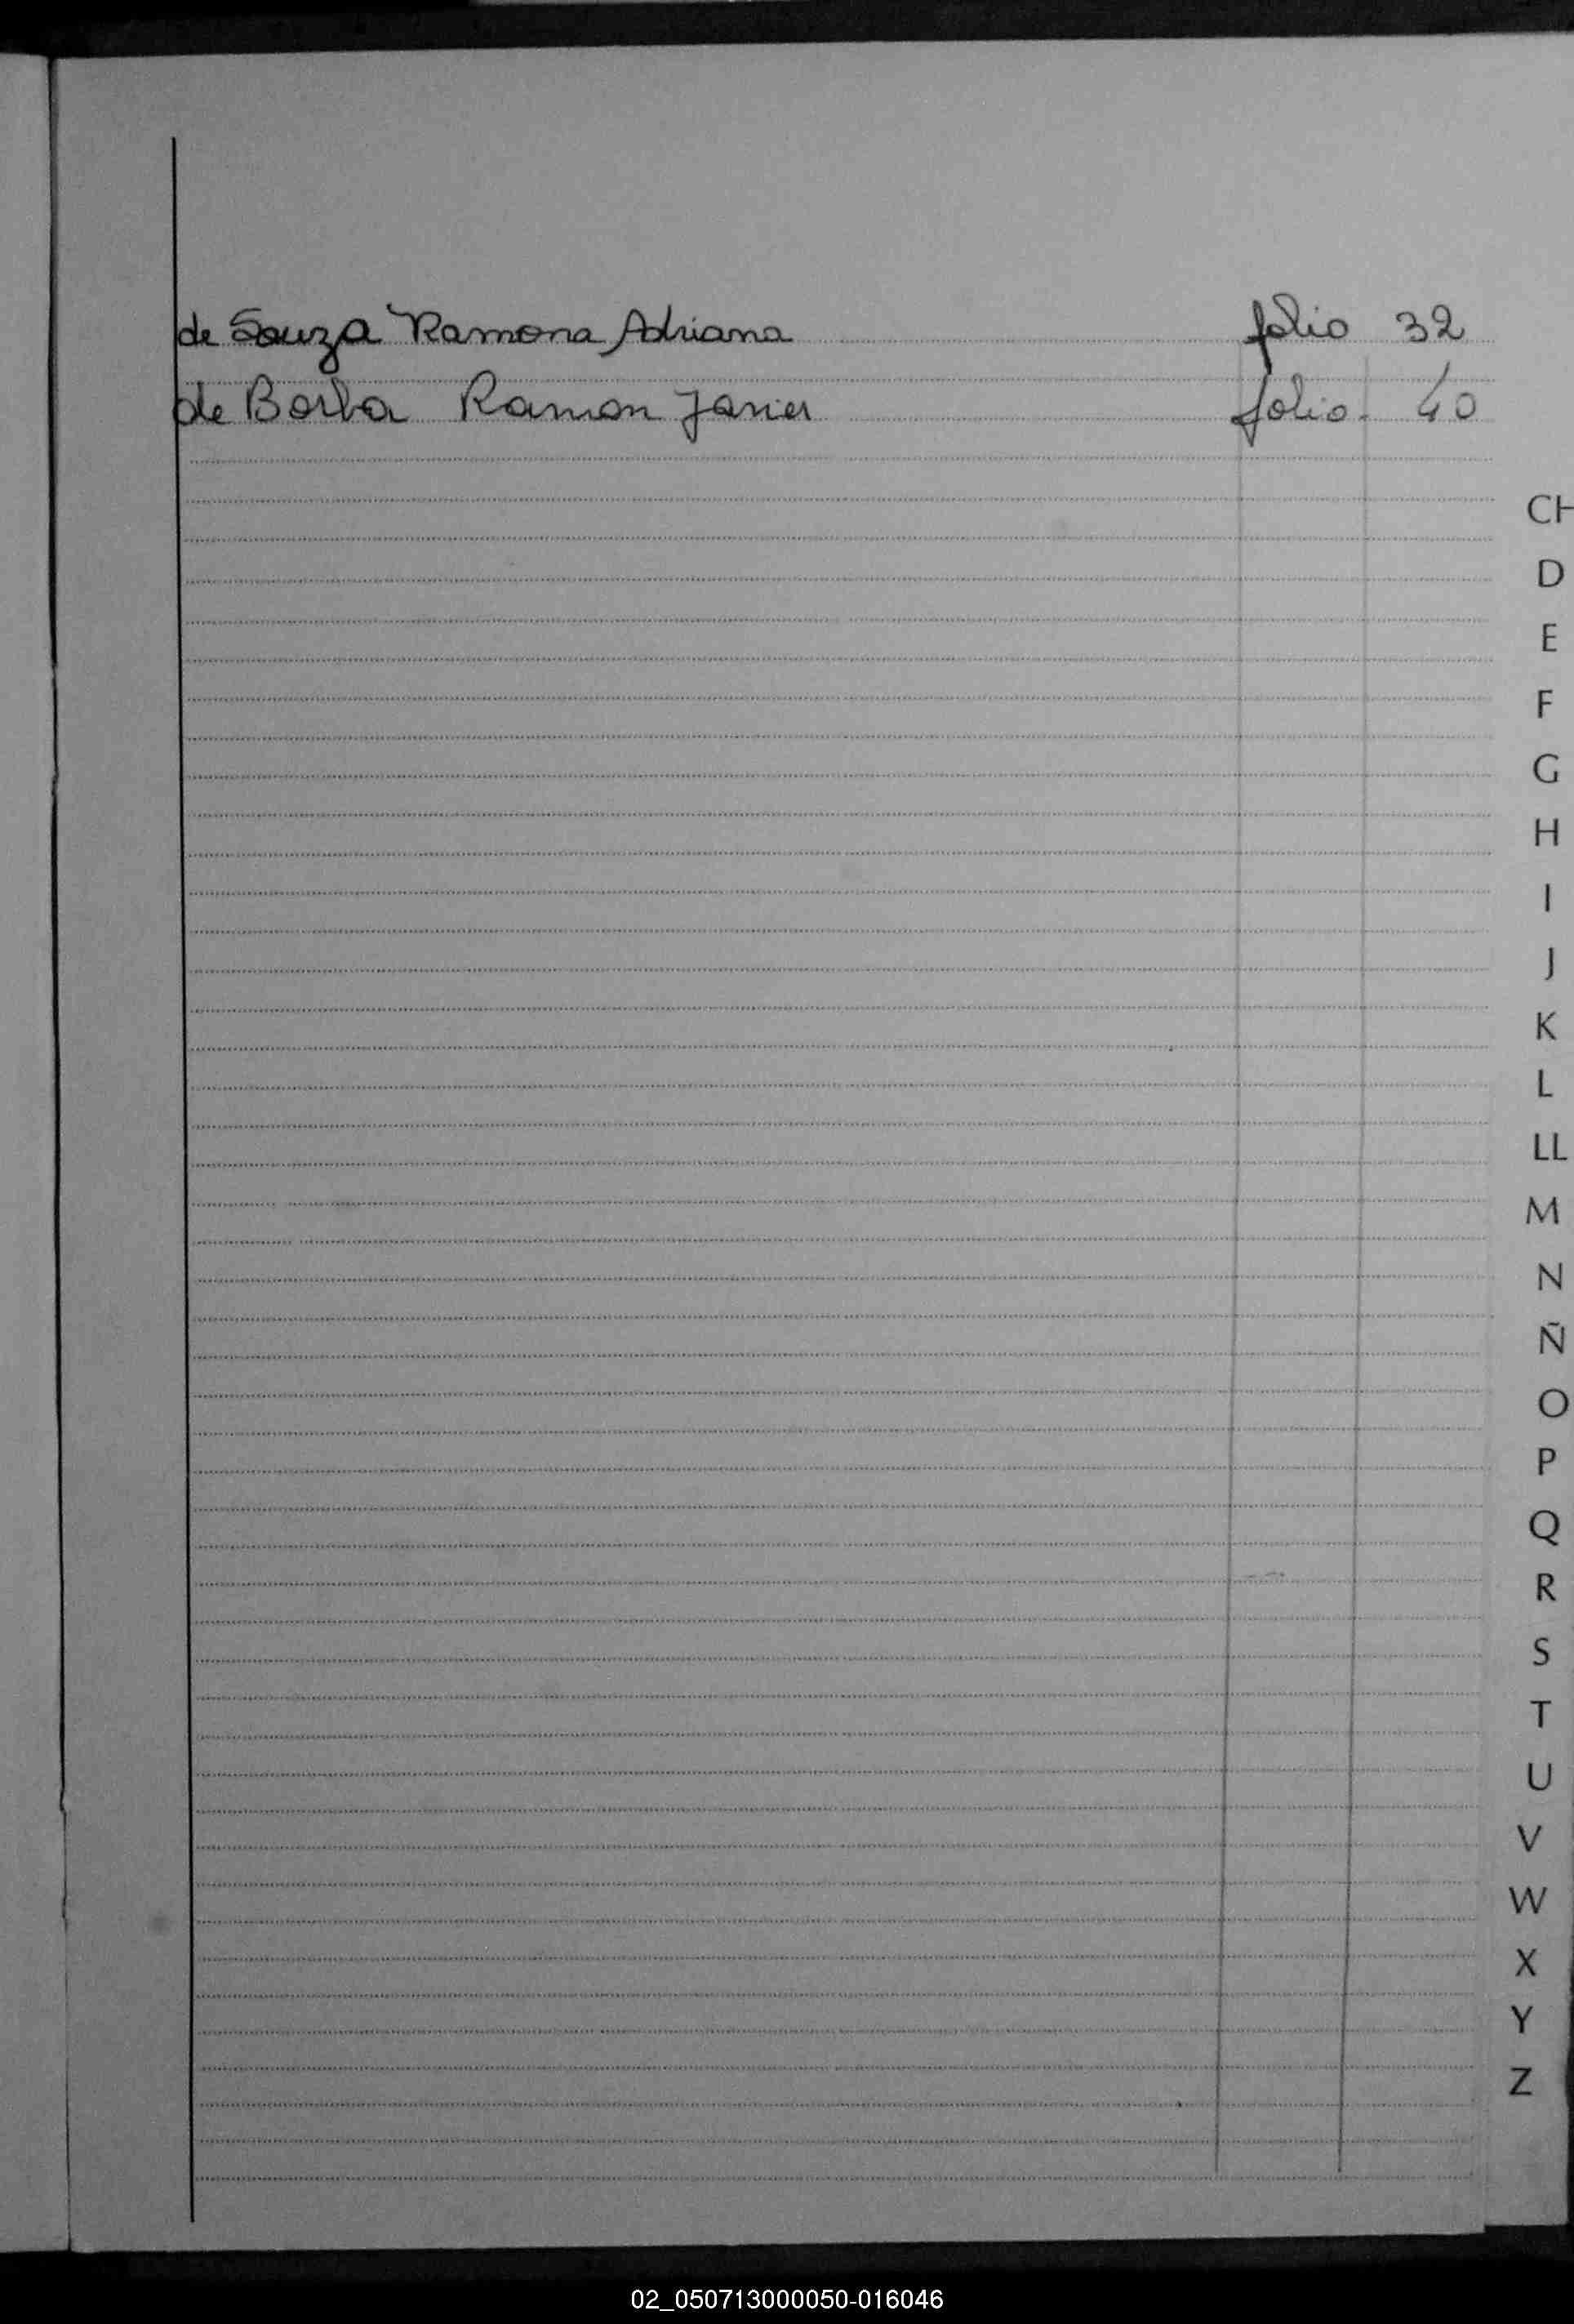 de Souza Ramona Adriana folio 32
de Borba Ramon Javier folio. 40
CH
D
E
F
G
H
I
J
K
L
LL
M
N
Ñ
O
P
Q
R
S
T
U
V
W
X
Y
Z
02_050713000050-016046